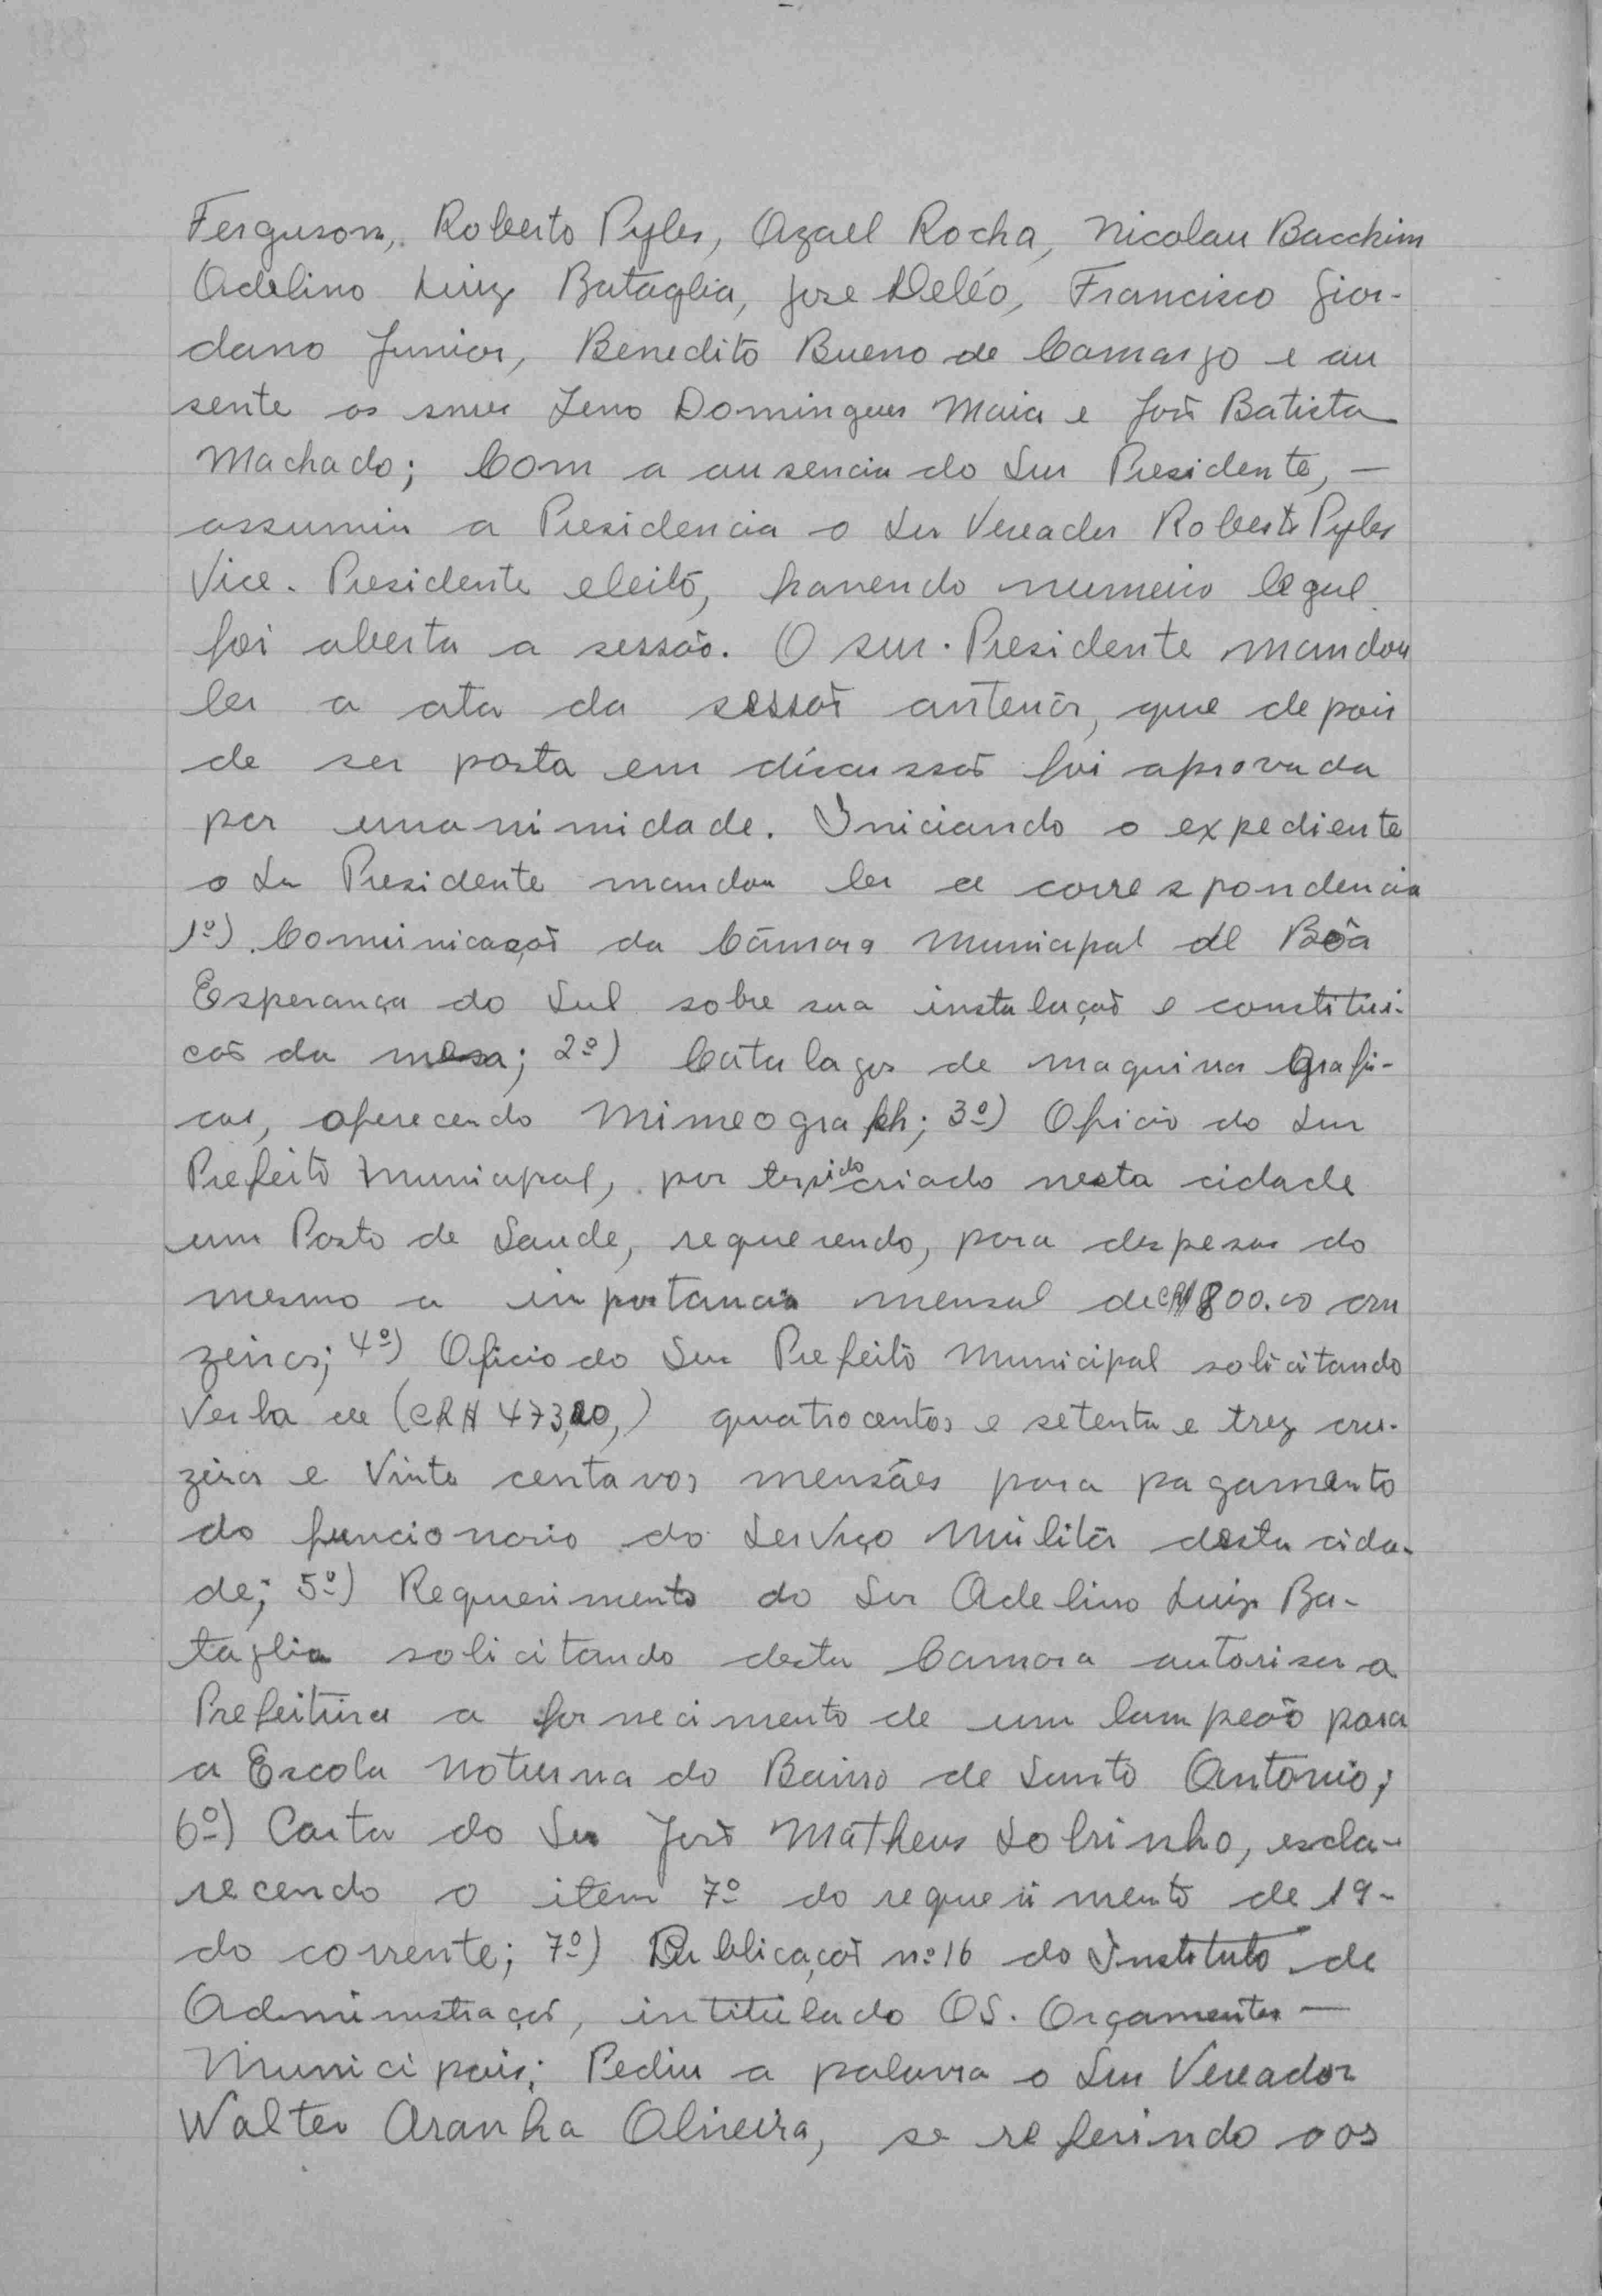 Ferguson, Roberto Pyles, Azael Rocha, Nicolau Bacchim
Adelino Luiz Bataglia, Jose Deléo, Francisco Gior-
dano Junior, Benedito Bueno de Camargo e au
sente os snres Zeno Domingues Maia e José Batista
Machado; Com a ausencia do Snr Presidente, —
assumiu a Presidencia o Snr Vereador Roberto Pyles
Vice. Presidente eleito, havendo numero legal
foi aberta a sessão. O snr. Presidente mandou
ler a ata da sessão anterior, que depois
de ser posta em discussão foi aprovada
por unanimidade. Iniciando o expediente
o Snr Presidente mandou ler a correspondencia
1º) Comunicação da Câmara Municipal de Bôa
Esperança do Sul sobre sua instalação e constitui-
cão da mesa; 2º) Catalagos de maquinas Grafi-
cas, oferecendo Mimeograph; 3º) Oficio do Snr
Prefeito Municipal, por ter sido criado nesta cidade
um Posto de Saude, requerendo, para despesas do
mesmo a importancia mensal de CR$ 800.00 cru
zeiros; 4º) Oficio do Snr Prefeito Municipal solicitando
Verba de (CR$ 473,20,) quatrocentos e setenta e trez cru-
zeiros e Vinte centavos mensáes para pagamento
do funcionario do Serviço Militar desta cida-
de; 5º) Requerimento do Snr Adelino Luiz Ba-
taglia solicitando desta Camara autorisar a
Prefeitura a fornecimento de um lampeão para
a Escola Noturna do Bairro de Santo Antonio;
6º) Carta do Snr José Matheus Sobrinho, escla-
recendo o item 7º do requerimento de 19-
do corrente; 7º) Publicação nº 16 do Instituto de
Administração, intitulado OS. Orçamentos —
Municipais; Pediu a palavra o Snr Vereador
Walter Aranha Oliveira, se referindo aos